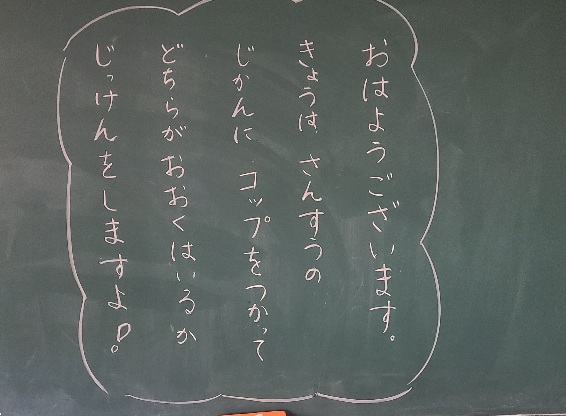 おはようございます。
きょうは、さんすうの
じかんに コップをつかって
どちらがおおくはいるか
じっけんをしますよ!